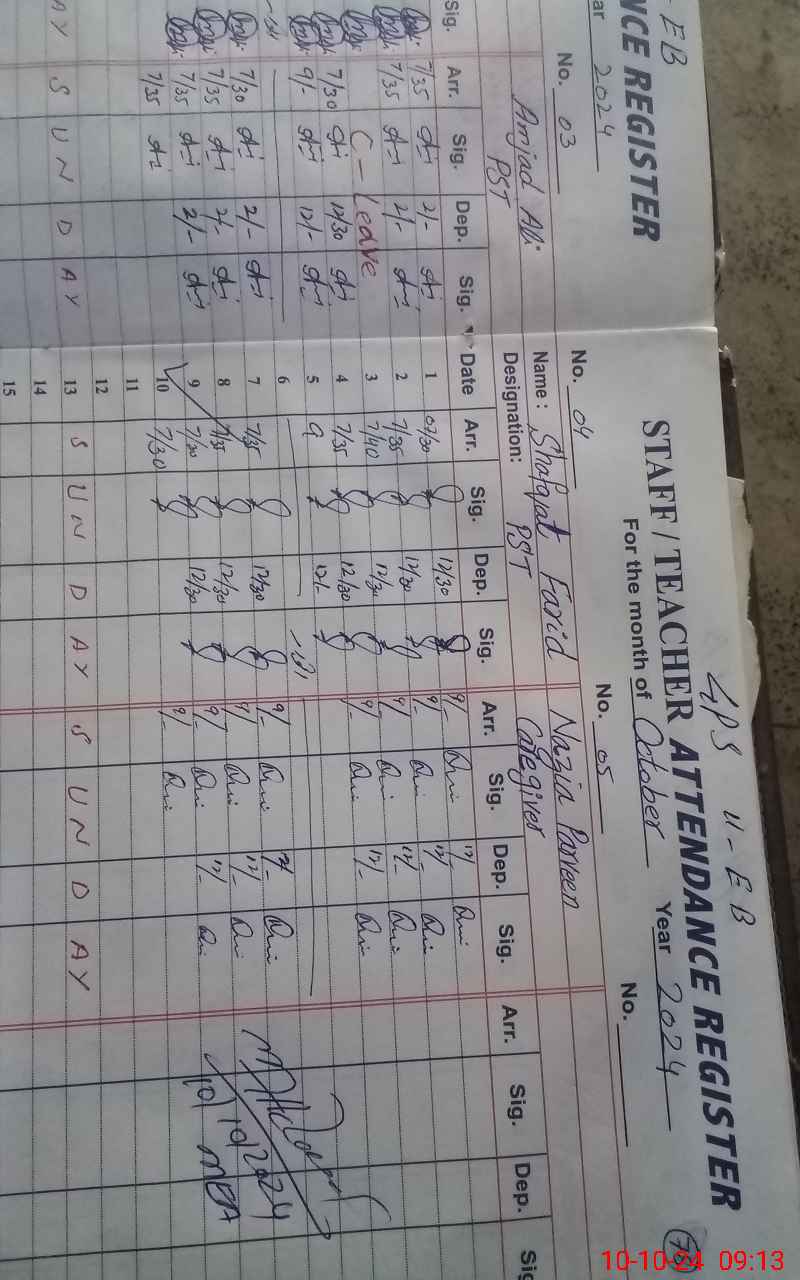 - EB
NCE REGISTER
ar 2024
No. 03
Amjad Ali
PST
Sig. Arr. Sig. Dep. Sig.
7/35 2/-
7/35 2/-
C - Leave
7/30 12/30
9/- 12/-
7/30 2/-
7/35 2/-
7/35 2/-
7/35
AY S U N D A Y
GPS 4-EB
STAFF / TEACHER ATTENDANCE REGISTER
For the month of October Year 2024
No. 04 No. 05 No.
Name : Shafqat Farid Nazia Parveen
Designation: PST Caregiver
Date Arr. Sig. Dep. Sig. Arr. Sig. Dep. Sig. Arr. Sig. Dep. Sig
1 07/30 12/30 9/- 12/-
2 7/35 12/30 9/- 12/-
3 7/40 12/30 9/- 12/-
4 7/35 12/30 9/- 12/-
5 9 12/-
6
7 7/35 12/30 9/-
8 7/35 12/30 9/- 12/-
9 7/30 12/30 9/- 12/-
10 7/30 9/-
11
12
13 S U N D A Y S U N D A Y
14
15
10/10/2024
MEA
10-10-24 09:13